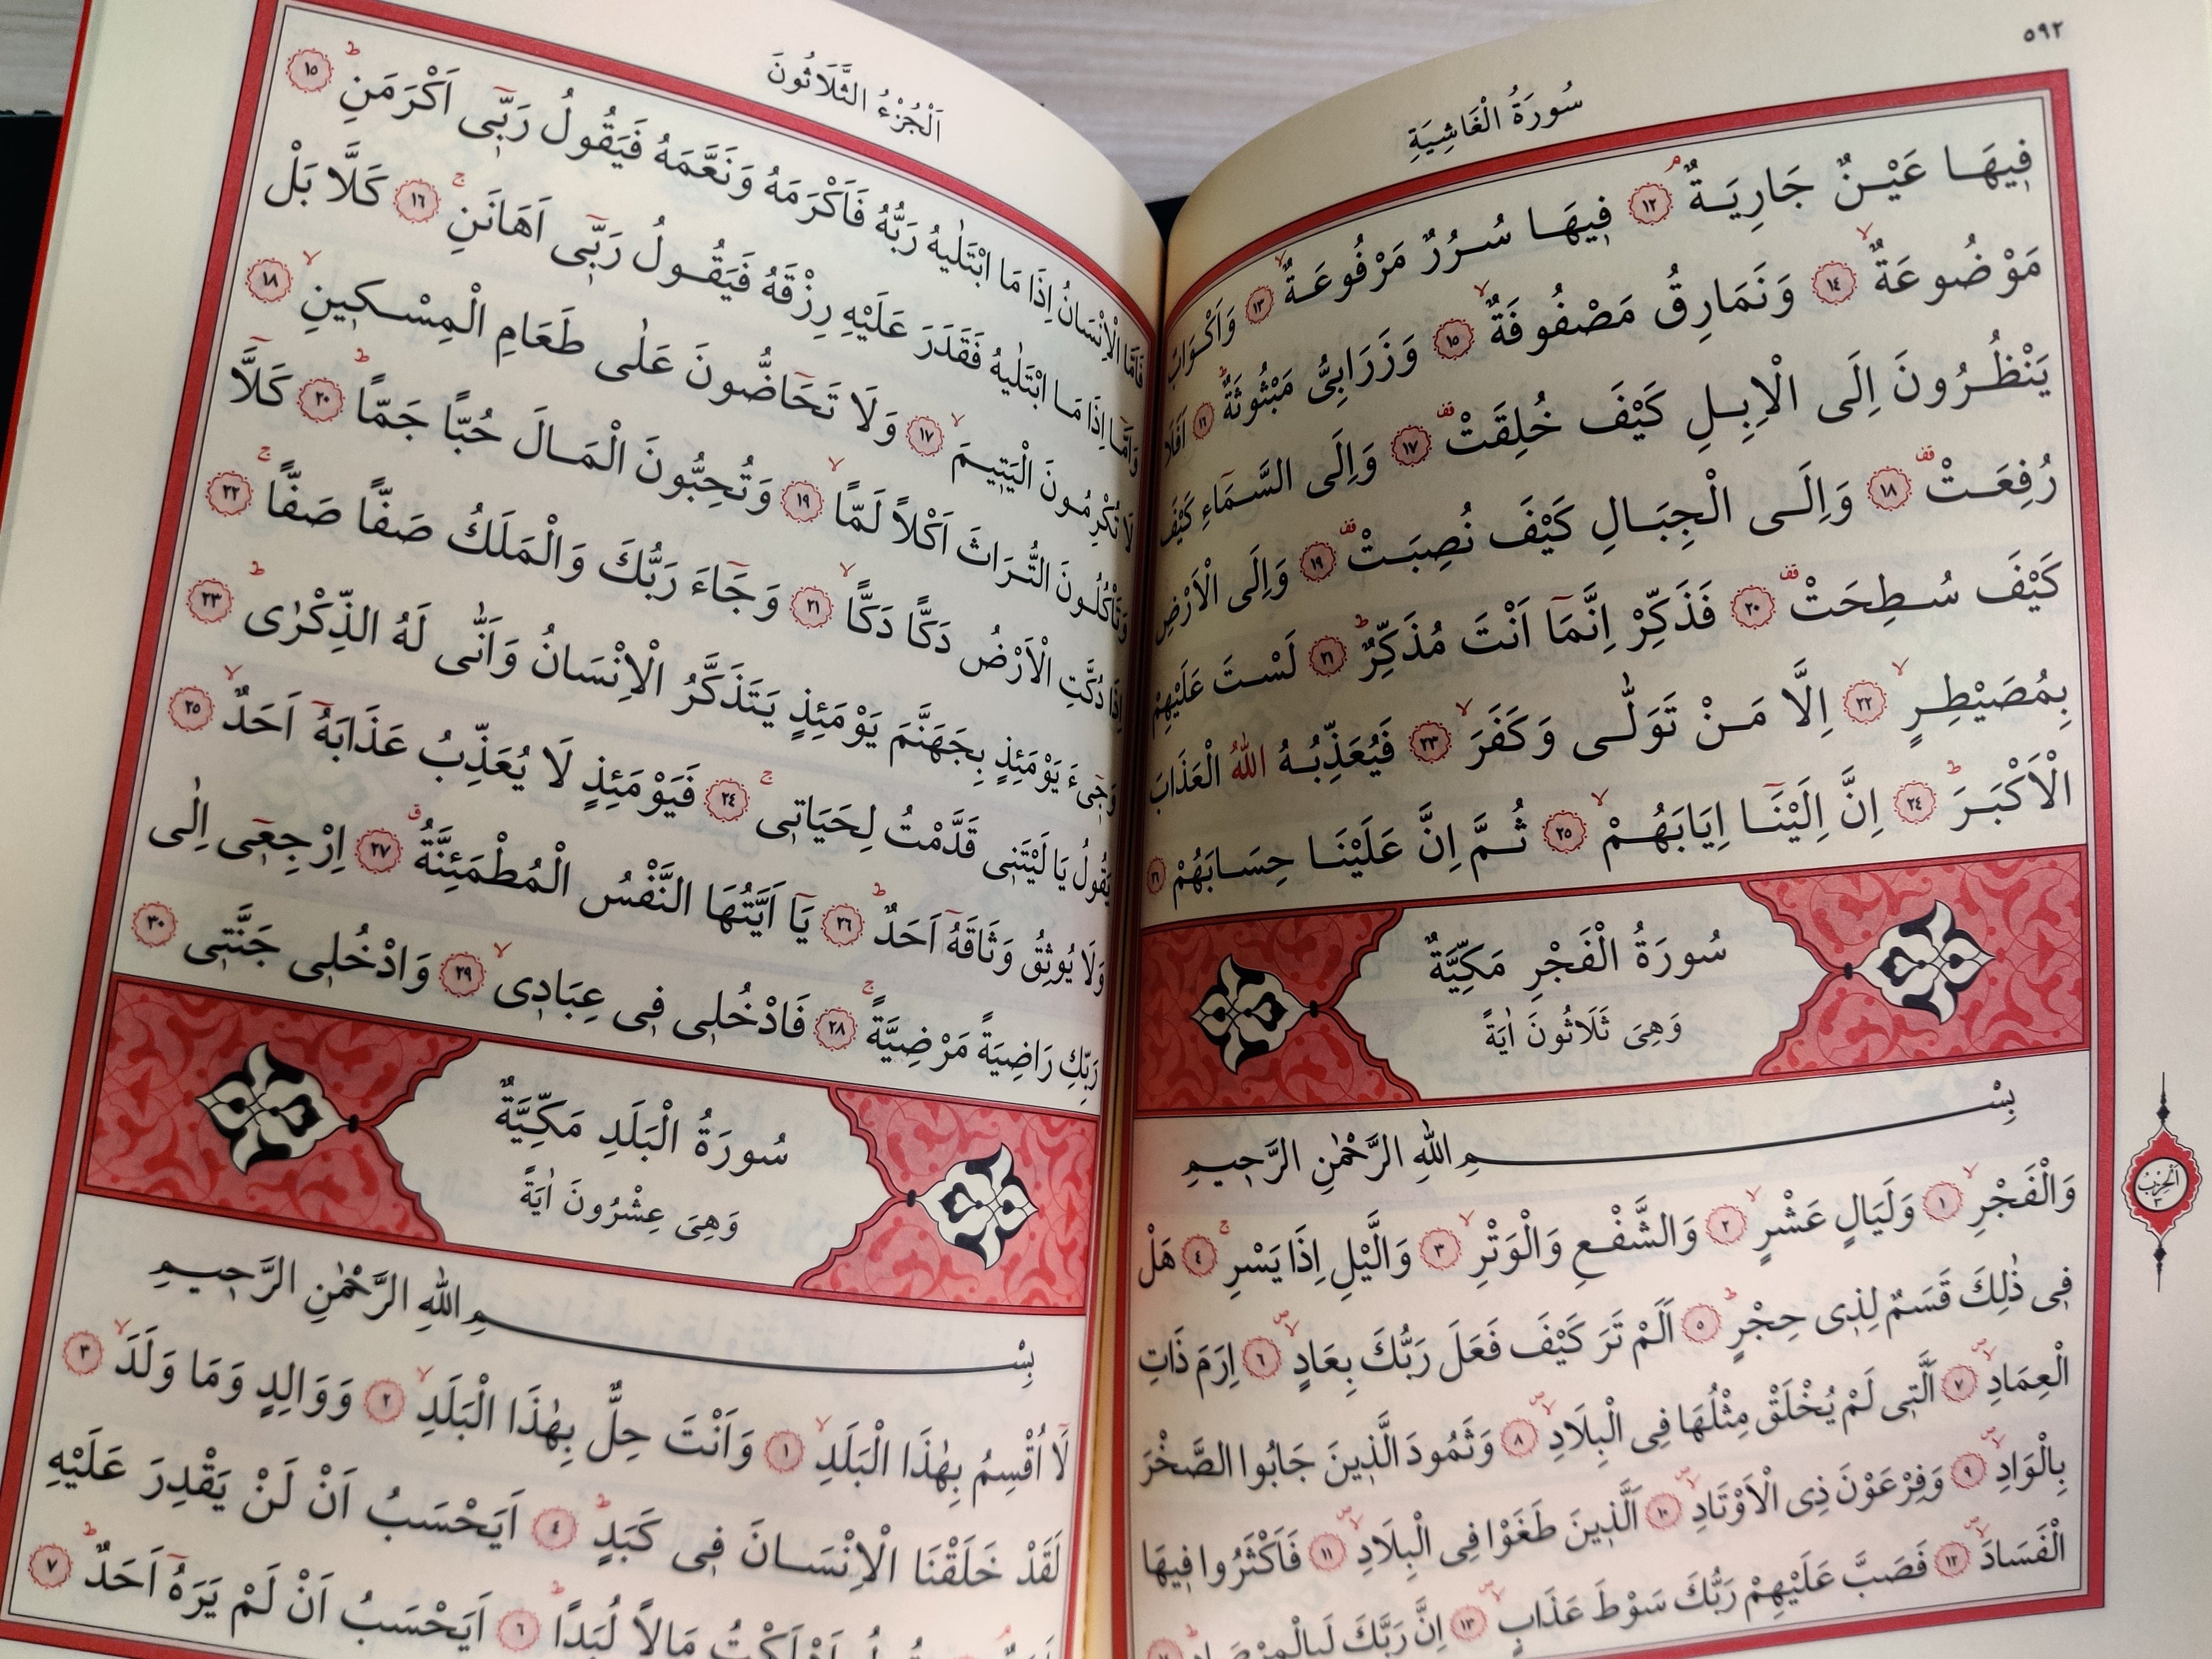 ٥٩٢
سُورَةُ الْغَاشِيَةِ
فِيهَا عَيْنٌ جَارِيَةٌۢ ﴿١٢﴾ فِيهَا سُرُرٌ مَرْفُوعَةٌۙ ﴿١٣﴾ وَاَكْوَابٌ
مَوْضُوعَةٌۙ ﴿١٤﴾ وَنَمَارِقُ مَصْفُوفَةٌۙ ﴿١٥﴾ وَزَرَابِيُّ مَبْثُوثَةٌۜ ﴿١٦﴾ اَفَلَا
يَنْظُرُونَ اِلَى الْاِبِلِ كَيْفَ خُلِقَتْ۠ ﴿١٧﴾ وَاِلَى السَّمَٓاءِ كَيْفَ
رُفِعَتْ۠ ﴿١٨﴾ وَاِلَى الْجِبَالِ كَيْفَ نُصِبَتْ۠ ﴿١٩﴾ وَاِلَى الْاَرْضِ
كَيْفَ سُطِحَتْ۠ ﴿٢٠﴾ فَذَكِّرْ اِنَّمَٓا اَنْتَ مُذَكِّرٌۜ ﴿٢١﴾ لَسْتَ عَلَيْهِمْ
بِمُصَيْطِرٍۙ ﴿٢٢﴾ اِلَّا مَنْ تَوَلّٰى وَكَفَرَۙ ﴿٢٣﴾ فَيُعَذِّبُهُ اللّٰهُ الْعَذَابَ
الْاَكْبَرَۜ ﴿٢٤﴾ اِنَّ اِلَيْنَٓا اِيَابَهُمْۙ ﴿٢٥﴾ ثُمَّ اِنَّ عَلَيْنَا حِسَابَهُمْ ﴿٢٦﴾
سُورَةُ الْفَجْرِ مَكِّيَّةٌ
وَهِيَ ثَلَاثُونَ اٰيَةً
بِسْمِ اللّٰهِ الرَّحْمٰنِ الرَّحِيمِ
وَالْفَجْرِۙ ﴿١﴾ وَلَيَالٍ عَشْرٍۙ ﴿٢﴾ وَالشَّفْعِ وَالْوَتْرِۙ ﴿٣﴾ وَالَّيْلِ اِذَا يَسْرِۚ ﴿٤﴾ هَلْ
فِي ذٰلِكَ قَسَمٌ لِذِي حِجْرٍۜ ﴿٥﴾ اَلَمْ تَرَ كَيْفَ فَعَلَ رَبُّكَ بِعَادٍۙۖ ﴿٦﴾ اِرَمَ ذَاتِ
الْعِمَادِۙۖ ﴿٧﴾ اَلَّتِي لَمْ يُخْلَقْ مِثْلُهَا فِي الْبِلَادِۙۖ ﴿٨﴾ وَثَمُودَ الَّذِينَ جَابُوا الصَّخْرَ
بِالْوَادِۙۖ ﴿٩﴾ وَفِرْعَوْنَ ذِي الْاَوْتَادِۙۖ ﴿١٠﴾ اَلَّذِينَ طَغَوْا فِي الْبِلَادِۙۖ ﴿١١﴾ فَاَكْثَرُوا فِيهَا
الْفَسَادَۙۖ ﴿١٢﴾ فَصَبَّ عَلَيْهِمْ رَبُّكَ سَوْطَ عَذَابٍۙۖ ﴿١٣﴾ اِنَّ رَبَّكَ لَبِالْمِرْصَادِۜ
اَلْحِزْبُ
٣
اَلْجُزْءُ الثَّلَاثُونَ
فَاَمَّا الْاِنْسَانُ اِذَا مَا ابْتَلٰيهُ رَبُّهُ فَاَكْرَمَهُ وَنَعَّمَهُ فَيَقُولُ رَبِّٓي اَكْرَمَنِۜ ﴿١٥﴾
وَاَمَّٓا اِذَا مَا ابْتَلٰيهُ فَقَدَرَ عَلَيْهِ رِزْقَهُ فَيَقُولُ رَبِّٓي اَهَانَنِۚ ﴿١٦﴾ كَلَّا بَلْ
لَا تُكْرِمُونَ الْيَتِيمَۙ ﴿١٧﴾ وَلَا تَحَٓاضُّونَ عَلٰى طَعَامِ الْمِسْكِينِۙ ﴿١٨﴾
وَتَأْكُلُونَ التُّرَاثَ اَكْلًا لَمًّاۙ ﴿١٩﴾ وَتُحِبُّونَ الْمَالَ حُبًّا جَمًّاۜ ﴿٢٠﴾ كَلَّٓا
اِذَا دُكَّتِ الْاَرْضُ دَكًّا دَكًّاۙ ﴿٢١﴾ وَجَٓاءَ رَبُّكَ وَالْمَلَكُ صَفًّا صَفًّاۚ ﴿٢٢﴾
وَجِٓيءَ يَوْمَئِذٍ بِجَهَنَّمَ يَوْمَئِذٍ يَتَذَكَّرُ الْاِنْسَانُ وَاَنّٰى لَهُ الذِّكْرٰىۜ ﴿٢٣﴾
يَقُولُ يَا لَيْتَنِي قَدَّمْتُ لِحَيَاتِيۚ ﴿٢٤﴾ فَيَوْمَئِذٍ لَا يُعَذِّبُ عَذَابَهُٓ اَحَدٌۙ ﴿٢٥﴾
وَلَا يُوثِقُ وَثَاقَهُٓ اَحَدٌۜ ﴿٢٦﴾ يَٓا اَيَّتُهَا النَّفْسُ الْمُطْمَئِنَّةُۗ ﴿٢٧﴾ اِرْجِعِٓي اِلٰى
رَبِّكِ رَاضِيَةً مَرْضِيَّةًۚ ﴿٢٨﴾ فَادْخُلِي فِي عِبَادِيۙ ﴿٢٩﴾ وَادْخُلِي جَنَّتِي ﴿٣٠﴾
سُورَةُ الْبَلَدِ مَكِّيَّةٌ
وَهِيَ عِشْرُونَ اٰيَةً
بِسْمِ اللّٰهِ الرَّحْمٰنِ الرَّحِيمِ
لَٓا اُقْسِمُ بِهٰذَا الْبَلَدِۙ ﴿١﴾ وَاَنْتَ حِلٌّ بِهٰذَا الْبَلَدِۙ ﴿٢﴾ وَوَالِدٍ وَمَا وَلَدَۙ ﴿٣﴾
لَقَدْ خَلَقْنَا الْاِنْسَانَ فِي كَبَدٍۜ ﴿٤﴾ اَيَحْسَبُ اَنْ لَنْ يَقْدِرَ عَلَيْهِ
اَهْلَكْتُ مَالًا لُبَدًاۜ ﴿٦﴾ اَيَحْسَبُ اَنْ لَمْ يَرَهُٓ اَحَدٌۜ ﴿٧﴾